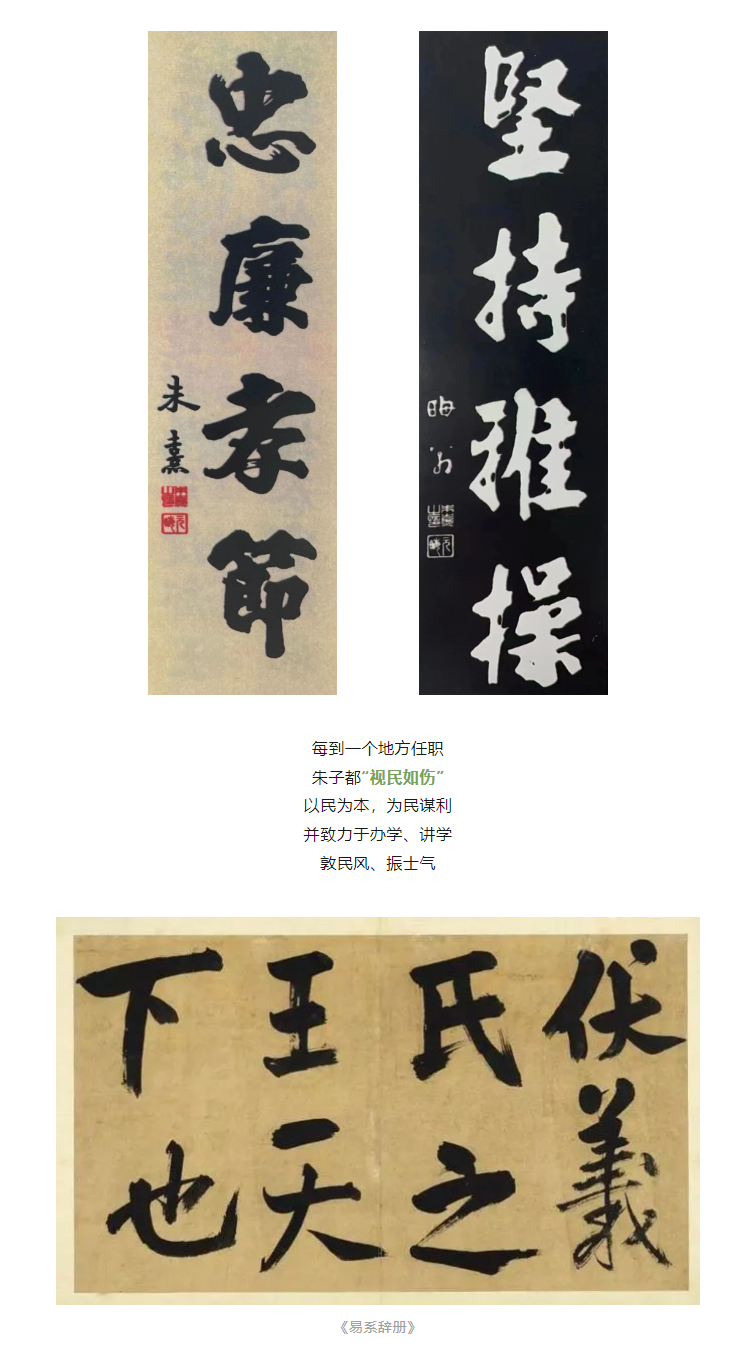 忠廉孝節
朱熹
堅持雅操
晦翁
每到一个地方任职
朱子都“视民如伤”
以民为本，为民谋利
并致力于办学、讲学
敦民风、振士气
伏羲
氏之
王天
下也
《易系辞册》